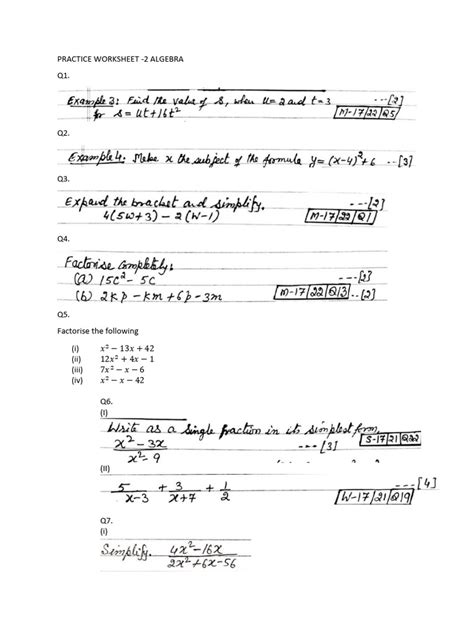 PRACTICE WORKSHEET -2 ALGEBRA
Q1.
Example 3: Find the value of s, when u=2 and t=3 ---[2]
for s = ut+16t² M-17/22/Q5
Q2.
Example 4: Make x the subject of the formula y=(x-4)²+6 ---[3]
Q3.
Expand the bracket and simplify. ---[2]
4(5w+3) - 2(w-1) M-17/22/Q1
Q4.
Factorise Completely:
(a) 15c² - 5c ---[2]
(b) 2kp - km + 6p - 3m M-17/22/Q13 ---[2]
Q5.
Factorise the following
(i) x² − 13x + 42
(ii) 12x² + 4x − 1
(iii) 7x² − x − 6
(iv) x² − x − 42
Q6.
(I)
Write as a single fraction in its simplest form. S-17/21/Q22
x²-3x ---[3]
x²-9
(II)
5/x-3 + 3/x+7 + 1/2 ---[4]
W-17/21/Q19
Q7.
(i)
Simplify. 4x²-16x
2x²+6x-56